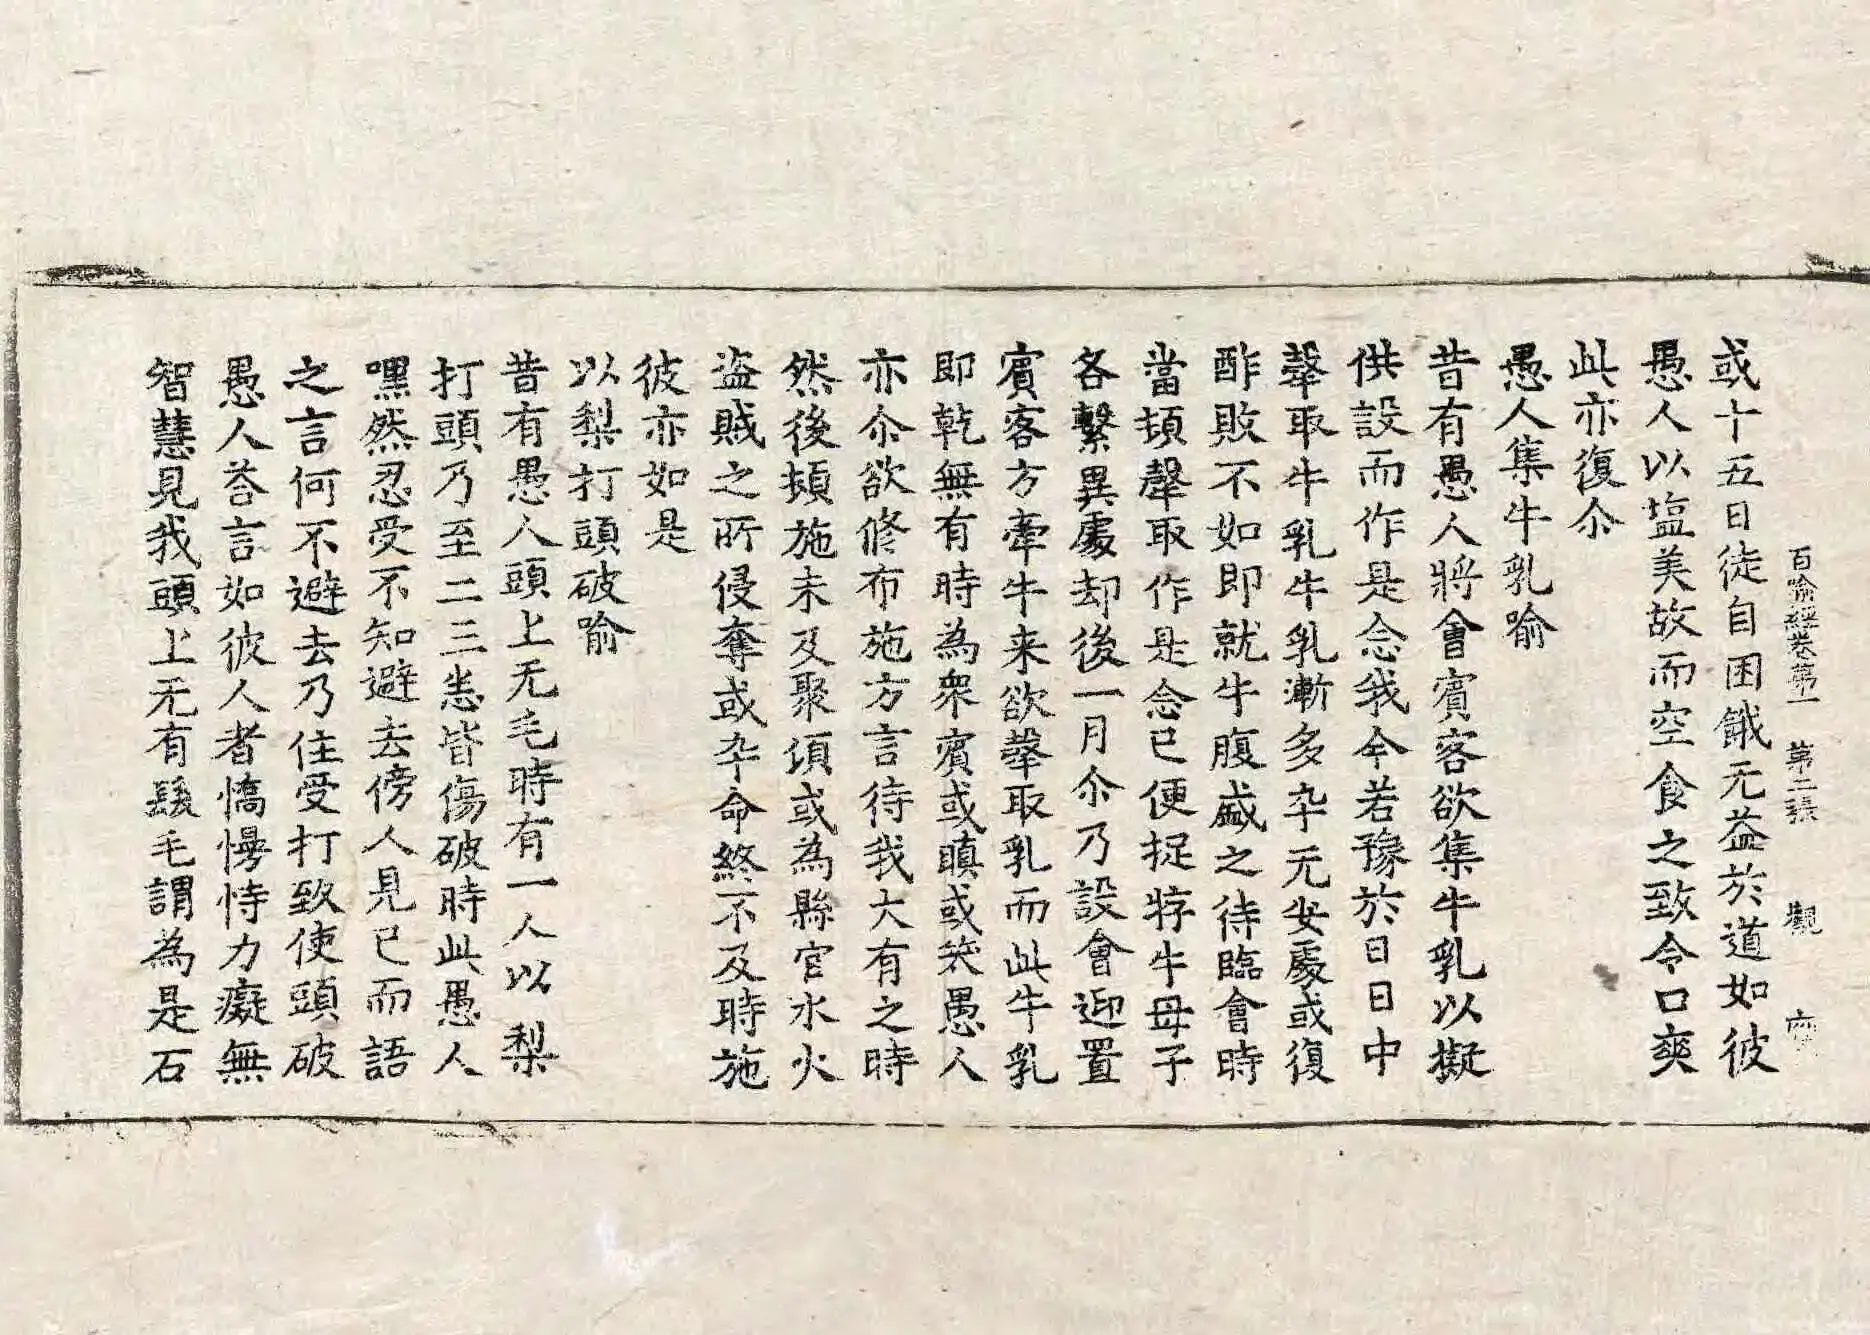 百喻經卷第一 第二張 觀
或十五日徒自困餓无益於道如彼
愚人以塩美故而空食之致令口爽
此亦復尒
愚人集牛乳喻
昔有愚人將會賓客欲集牛乳以擬
供設而作是念我今若豫於日日中
𤛗取牛乳牛乳漸多卒无安處或復
酢敗不如即就牛腹盛之待臨會時
當頓𤛗取作是念已便捉牸牛母子
各繫異處却後一月尒乃設會迎置
賓客方牽牛来欲𤛗取乳而此牛乳
即乾無有時為衆賓或瞋或笑愚人
亦尒欲修布施方言待我大有之時
然後頓施未及聚頃或為縣官水火
盗賊之所侵奪或卒命終不及時施
彼亦如是
以梨打頭破喻
昔有愚人頭上无毛時有一人以梨
打頭乃至二三悉皆傷破時此愚人
嘿然忍受不知避去傍人見已而語
之言何不避去乃住受打致使頭破
愚人荅言如彼人者憍慢恃力癡無
智慧見我頭上无有髮毛謂為是石